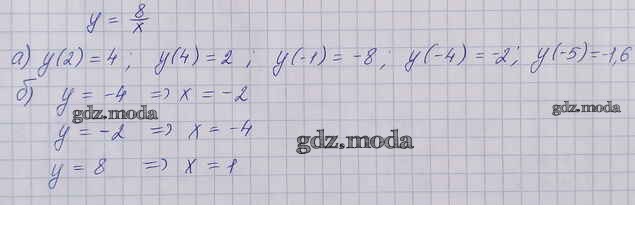 y = 8/x
а) y(2) = 4; y(4) = 2; y(-1) = -8; y(-4) = -2; y(-5) = -1,6
б) y = -4 => x = -2
gdz.moda gdz.moda
y = -2 => x = -4
gdz.moda
y = 8 => x = 1